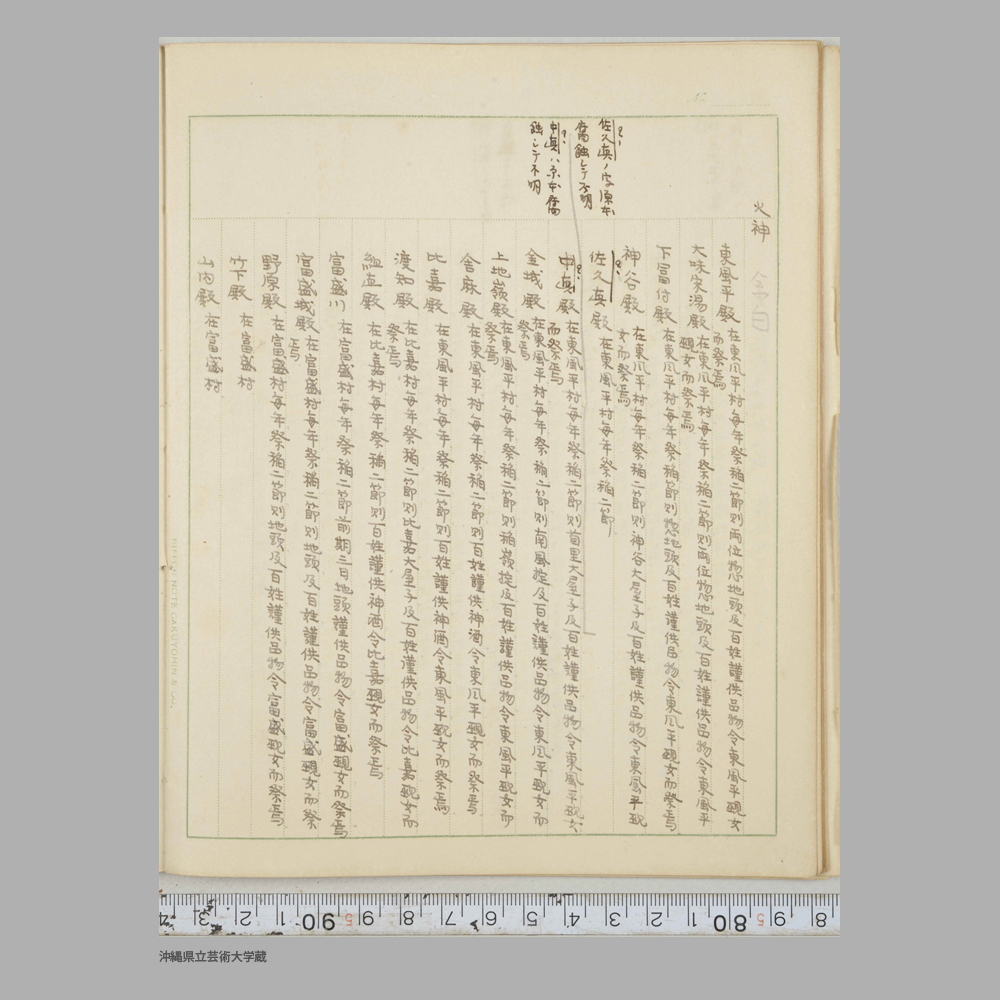 火神
佐久真ノ字原本
腐蝕シテ不明
中真ハ原本腐
蝕シテ不明
東風平殿 在東風平村毎年祭稲二節則両位惣地頭及百姓謹供品物令東風平覡女
而祭焉
大味朱湯殿 在東風平村毎年祭稲二節則両位惣地頭及百姓謹供品物令東風平
覡女而祭焉
下冨付殿 在東風平村毎年祭稲二節則惣地頭及百姓謹供品物令東風平覡女而祭焉
神谷殿 在東風平村毎年祭稲二節則神谷大屋子及百姓謹供品物令東風平覡
女而祭焉
佐久真殿 在東風平村毎年祭稲二節
中真殿 在東風平村毎年祭稲二節則宮里大屋子及百姓謹供品物令東風平覡女
而祭焉
金城殿 在東風平村毎年祭稲二節則南風掟及百姓謹供品物令東風平覡女而
祭焉
上地嶺殿 在東風平村毎年祭稲二節則稲嶺掟及百姓謹供品物令東風平覡女而
祭焉
舎麻殿 在東風平村毎年祭稲二節則百姓謹供神酒令東風平覡女而祭焉
比嘉殿 在東風平村毎年祭稲二節則百姓謹供神酒令東風平覡女而祭焉
渡知殿 在比嘉村毎年祭稲二節則比嘉大屋子及百姓謹供品物令比嘉覡女而
祭焉
殿 在比嘉村毎年祭稲二節則百姓謹供神酒令比嘉覡女而祭焉
富盛川 在富盛村毎年祭稲二節前期三日地頭謹供品物令富盛覡女而祭焉
富盛城殿 在富盛村毎年祭稲二節則地頭及百姓謹供品物令富盛覡女而祭
焉
野原殿 在富盛村毎年祭稲二節則地頭及百姓謹供品物令富盛覡女而祭焉
竹下殿 在富盛村
山内殿 在富盛村
沖縄県立芸術大学蔵